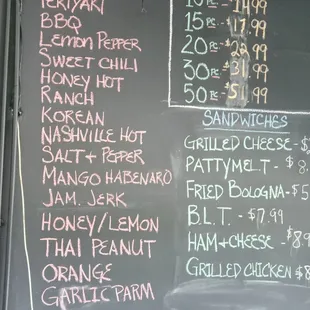 TERIYAKI
BBQ
LEMON PEPPER
SWEET CHILI
HONEY HOT
RANCH
KOREAN
NASHVILLE HOT
SALT + PEPPER
MANGO HABENARO
JAM. JERK
HONEY/LEMON
THAI PEANUT
ORANGE
GARLIC PARM
10 PC - 14.99
15 PC - $17.99
20 PC - $22.99
30 PC - $31.99
50 PC - $51.99
SANDWICHES
GRILLED CHEESE - $
PATTYMELT - $8.
FRIED BOLOGNA - $5
B.L.T. - $7.99
HAM + CHEESE - $8.9
GRILLED CHICKEN $8